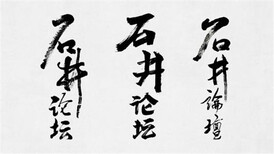 石井论坛
石井论坛
石井論壇